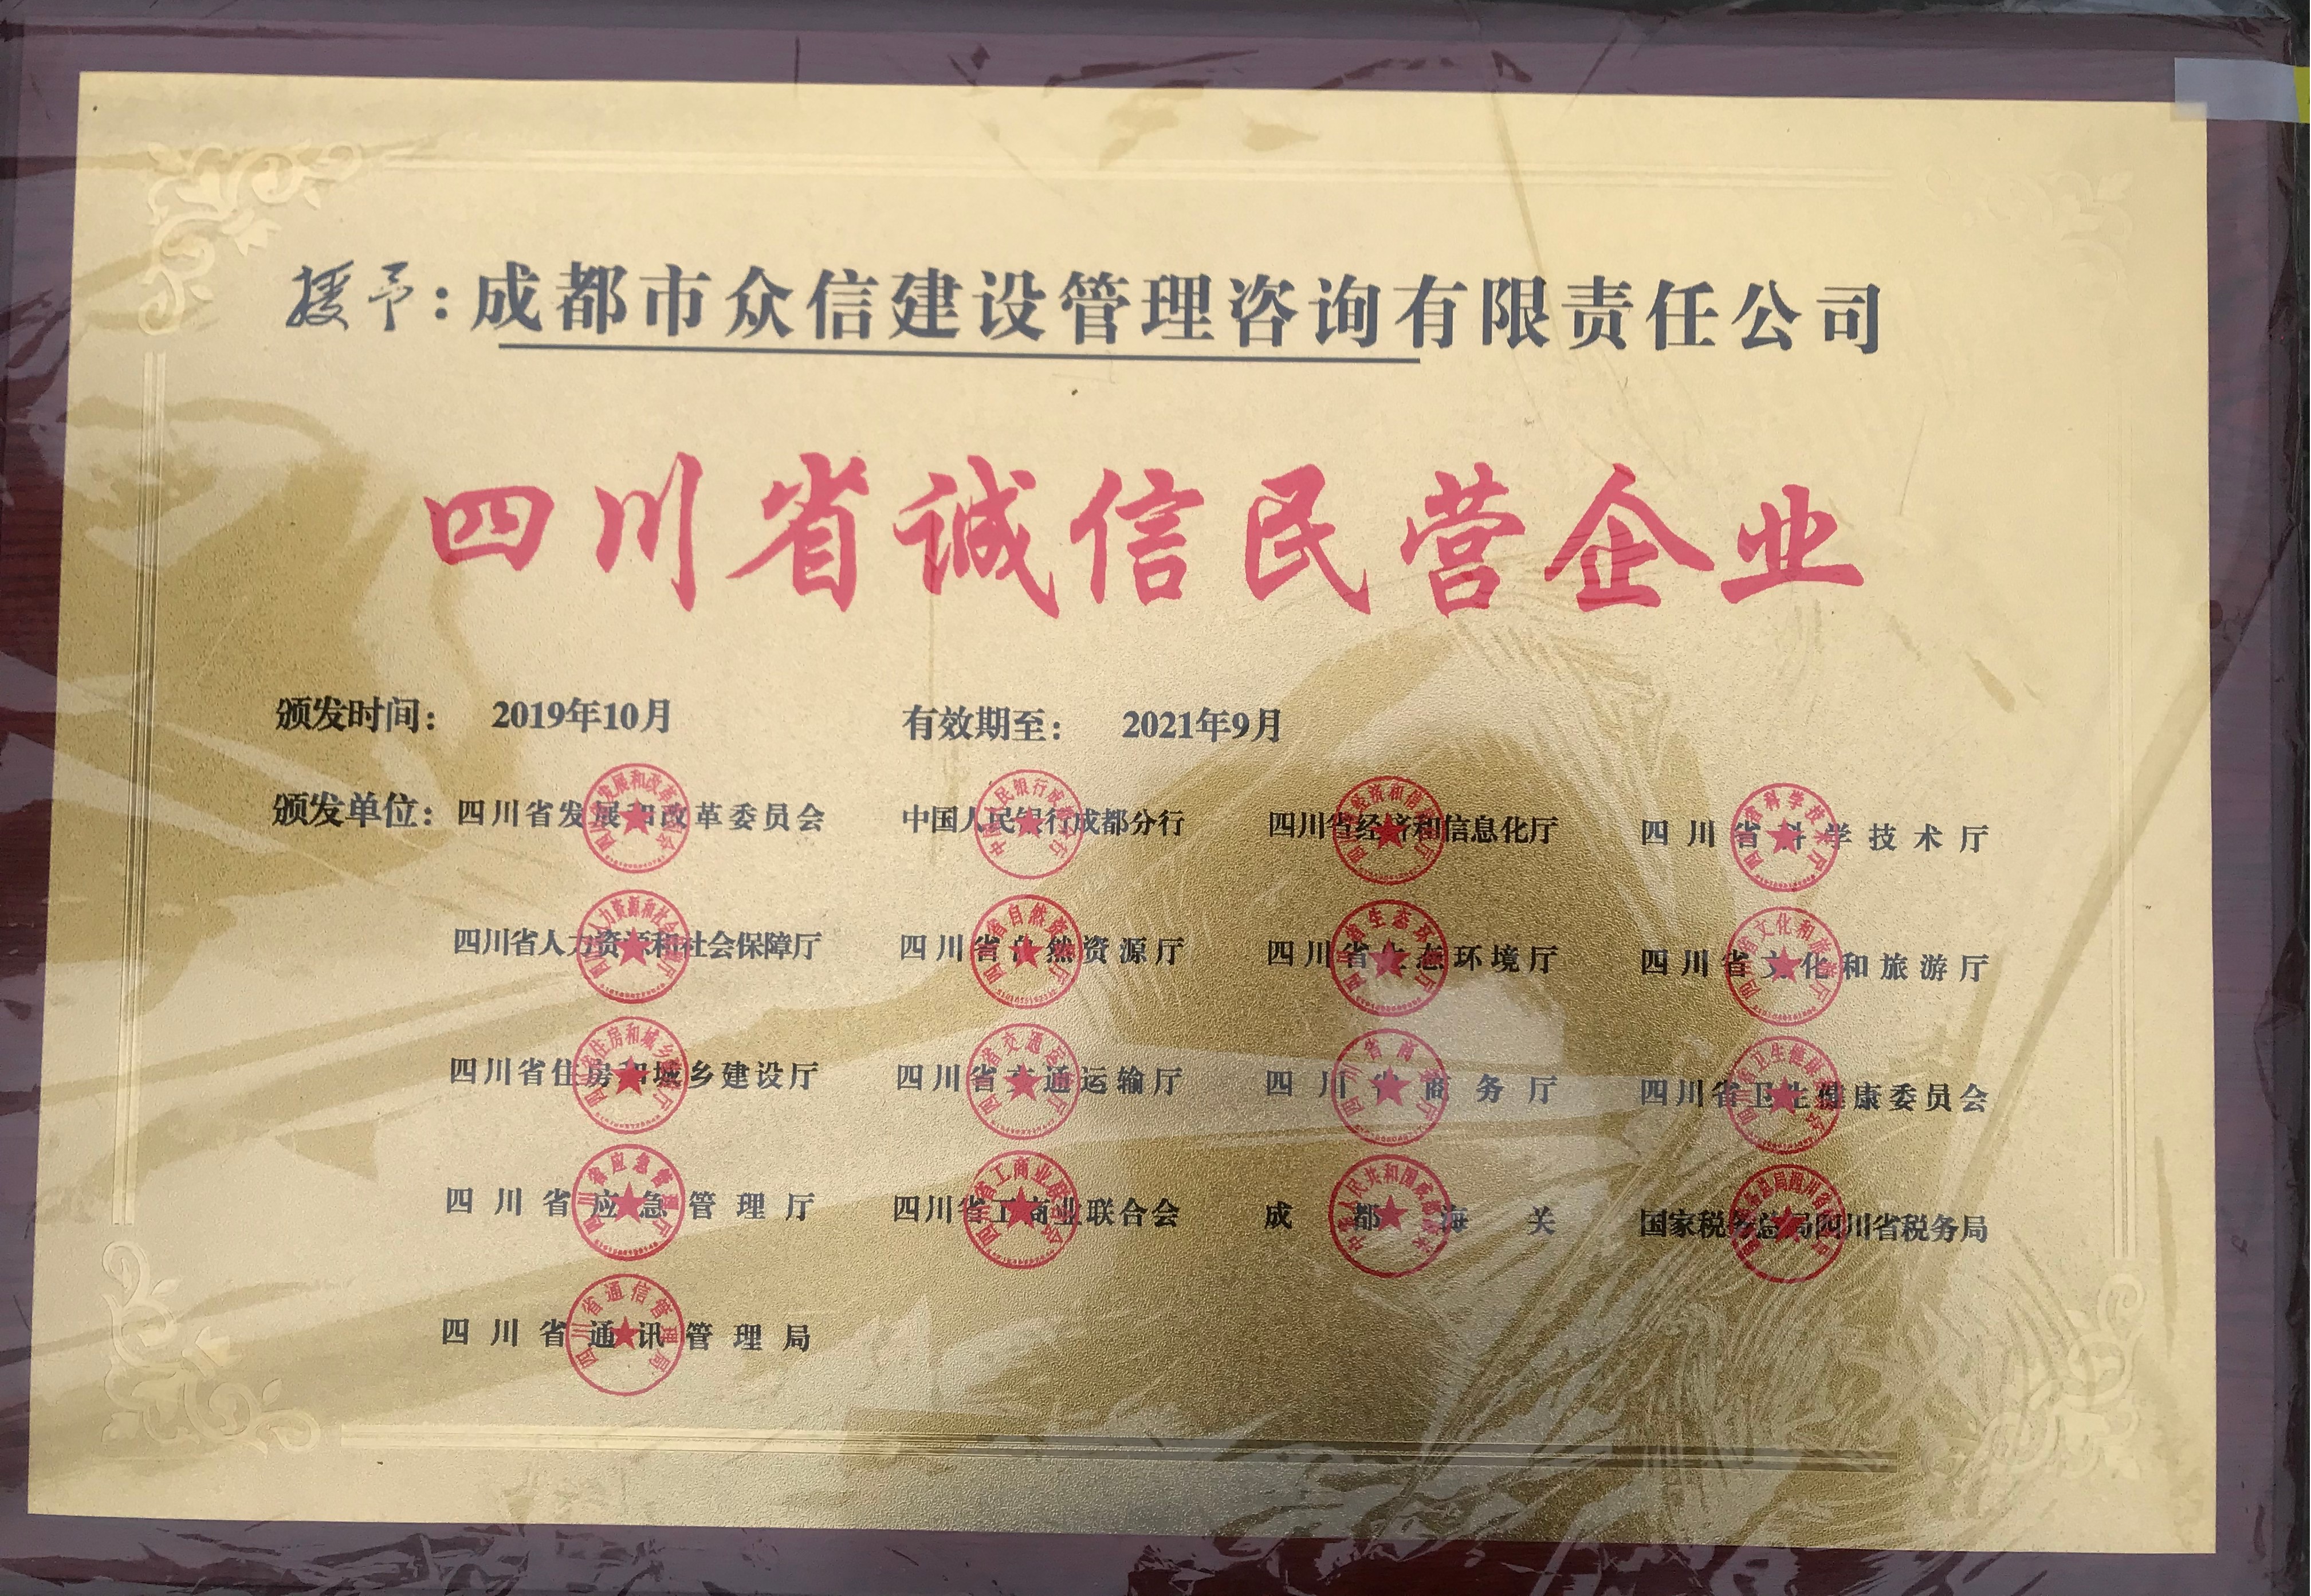 授予：成都市众信建设管理咨询有限责任公司
四川省诚信民营企业
颁发时间： 2019年10月 有效期至： 2021年9月
颁发单位：四川省发展和改革委员会 中国人民银行成都分行 四川省经济和信息化厅 四川省科学技术厅
四川省人力资源和社会保障厅 四川省自然资源厅 四川省生态环境厅 四川省文化和旅游厅
四川省住房和城乡建设厅 四川省交通运输厅 四川省商务厅 四川省卫生健康委员会
四川省应急管理厅 四川省工商业联合会 成都海关 国家税务总局四川省税务局
四川省通讯管理局